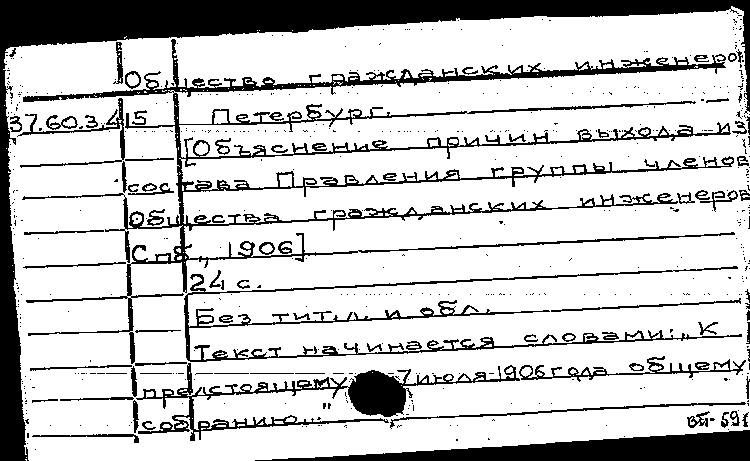 Общество гражданских инженеро
37.60.3.415 Петербург.
[Объяснение причин выхода из
состава Правления группы членов
Общества гражданских инженеров
Спб., 1906]
24 с.
Без тит.л. и обл.
Текст начинается словами: „К
предстоящему 7 июля 1906 года общему
собранию..."